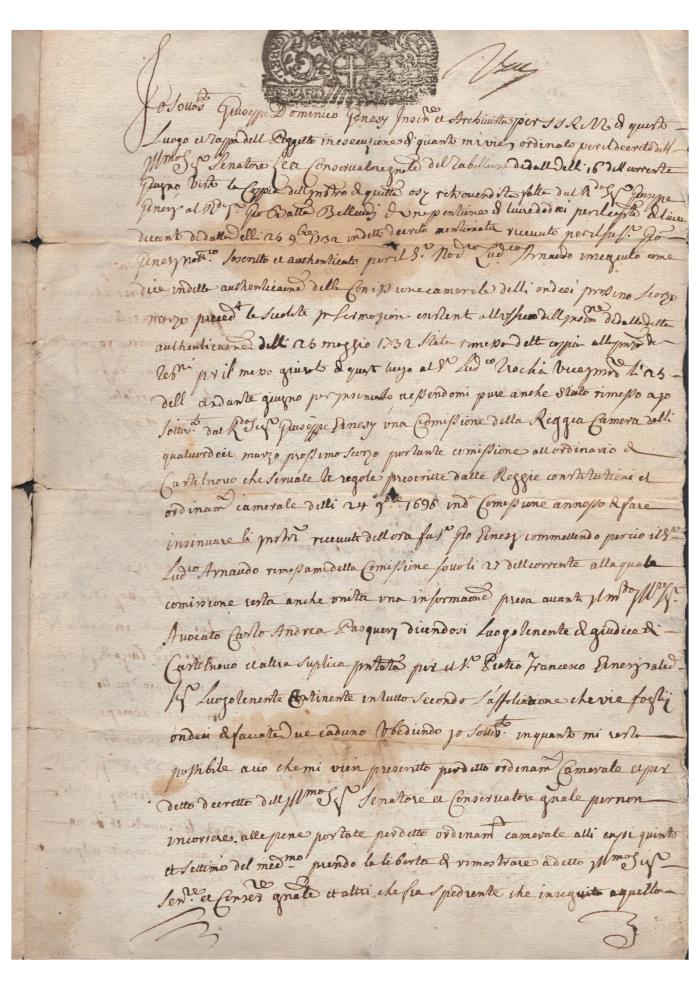 Io sottos.to Giuseppe Domenico Genesy Insin.re et Archivista per S S R M di questo
Luogo et tappa dell in essecuzione di quanto mi vien ordinato per el decreto dell
Ill.mo Sig.r Senatore Lea Conservatore gnale del Tabellione di datta delli 16 dell corrente
Giugno visto la Coppia dell Instro di quitta fatta dal R.do Sig.r Giuseppe
Genesy al R.d Sig.r Gio Batta di lire dodeci per il di lire
ducento di datta delli 25 9bre 1732 in detto decreto mentionata ricevuto per il fu S.r Gio
Genesy soscritto et authenticato per il S.r Nod.ro Lud.co Arnaudo inseguito come
dice in detta authenticaone della Comissione camerale delli ondeci prossimo scorso
marzo preced.te le sscolite per di datta della
authenticaone delli 25 maggio 1732 state rimesso dette coppia all
per il mero giusto di questo luogo al S.r Lud.co Rocha li 25
dell andante giugno per insinuarlo, et essendomi pure anche stato rimesso a jo
sottos.to dal R.do Sig.r Giuseppe Genesy una Comissione della Reggia Camera delli
quatuordeci marzo prossimo scorso portante comissione all ordinario di
Castelnovo che servate le regole prescritte dalle Reggie constitutioni et
ordinam.ti camerale delli 24 9bre 1696 in d.ta Comissione annesso di fare
insinuare li Instri ricevuti dell ora fu S.r Gio Genesy commettendo per cio il S.r
Lud.co Arnaudo rimossami detta Comissione sovo li 27 dell corrente alla quale
comissione resta anche unita una informaone presa avanti Il m.to Ill.re Sig.r
Avocato Carlo Andrea Pasquery dicendosi Luogotenente di giudice di
Castelnovo et altra suplica pntata per il S.r Pietro Francesco Genesy al d.
Sig.r Luogotenente Continente in tutto secondo l'affoliatione che vi è fogli
ondeci di facciate due caduno Obediendo jo sottos.to in quanto mi resta
possibile a cio che mi vien prescritto per detto ordinam.to Camerale et per
detto decretto dell Ill.mo Sig.r Senatore et Conservatore gnale per non
incorrere alle pene portate per detto ordinam.to camerale alli capi quinto
et settimo del med.mo prendo la liberta di rimostrare a detto Ill.mo Sig.r
Sen.re et Conser.re gnale et altri che fia spediente che inseguito a quello